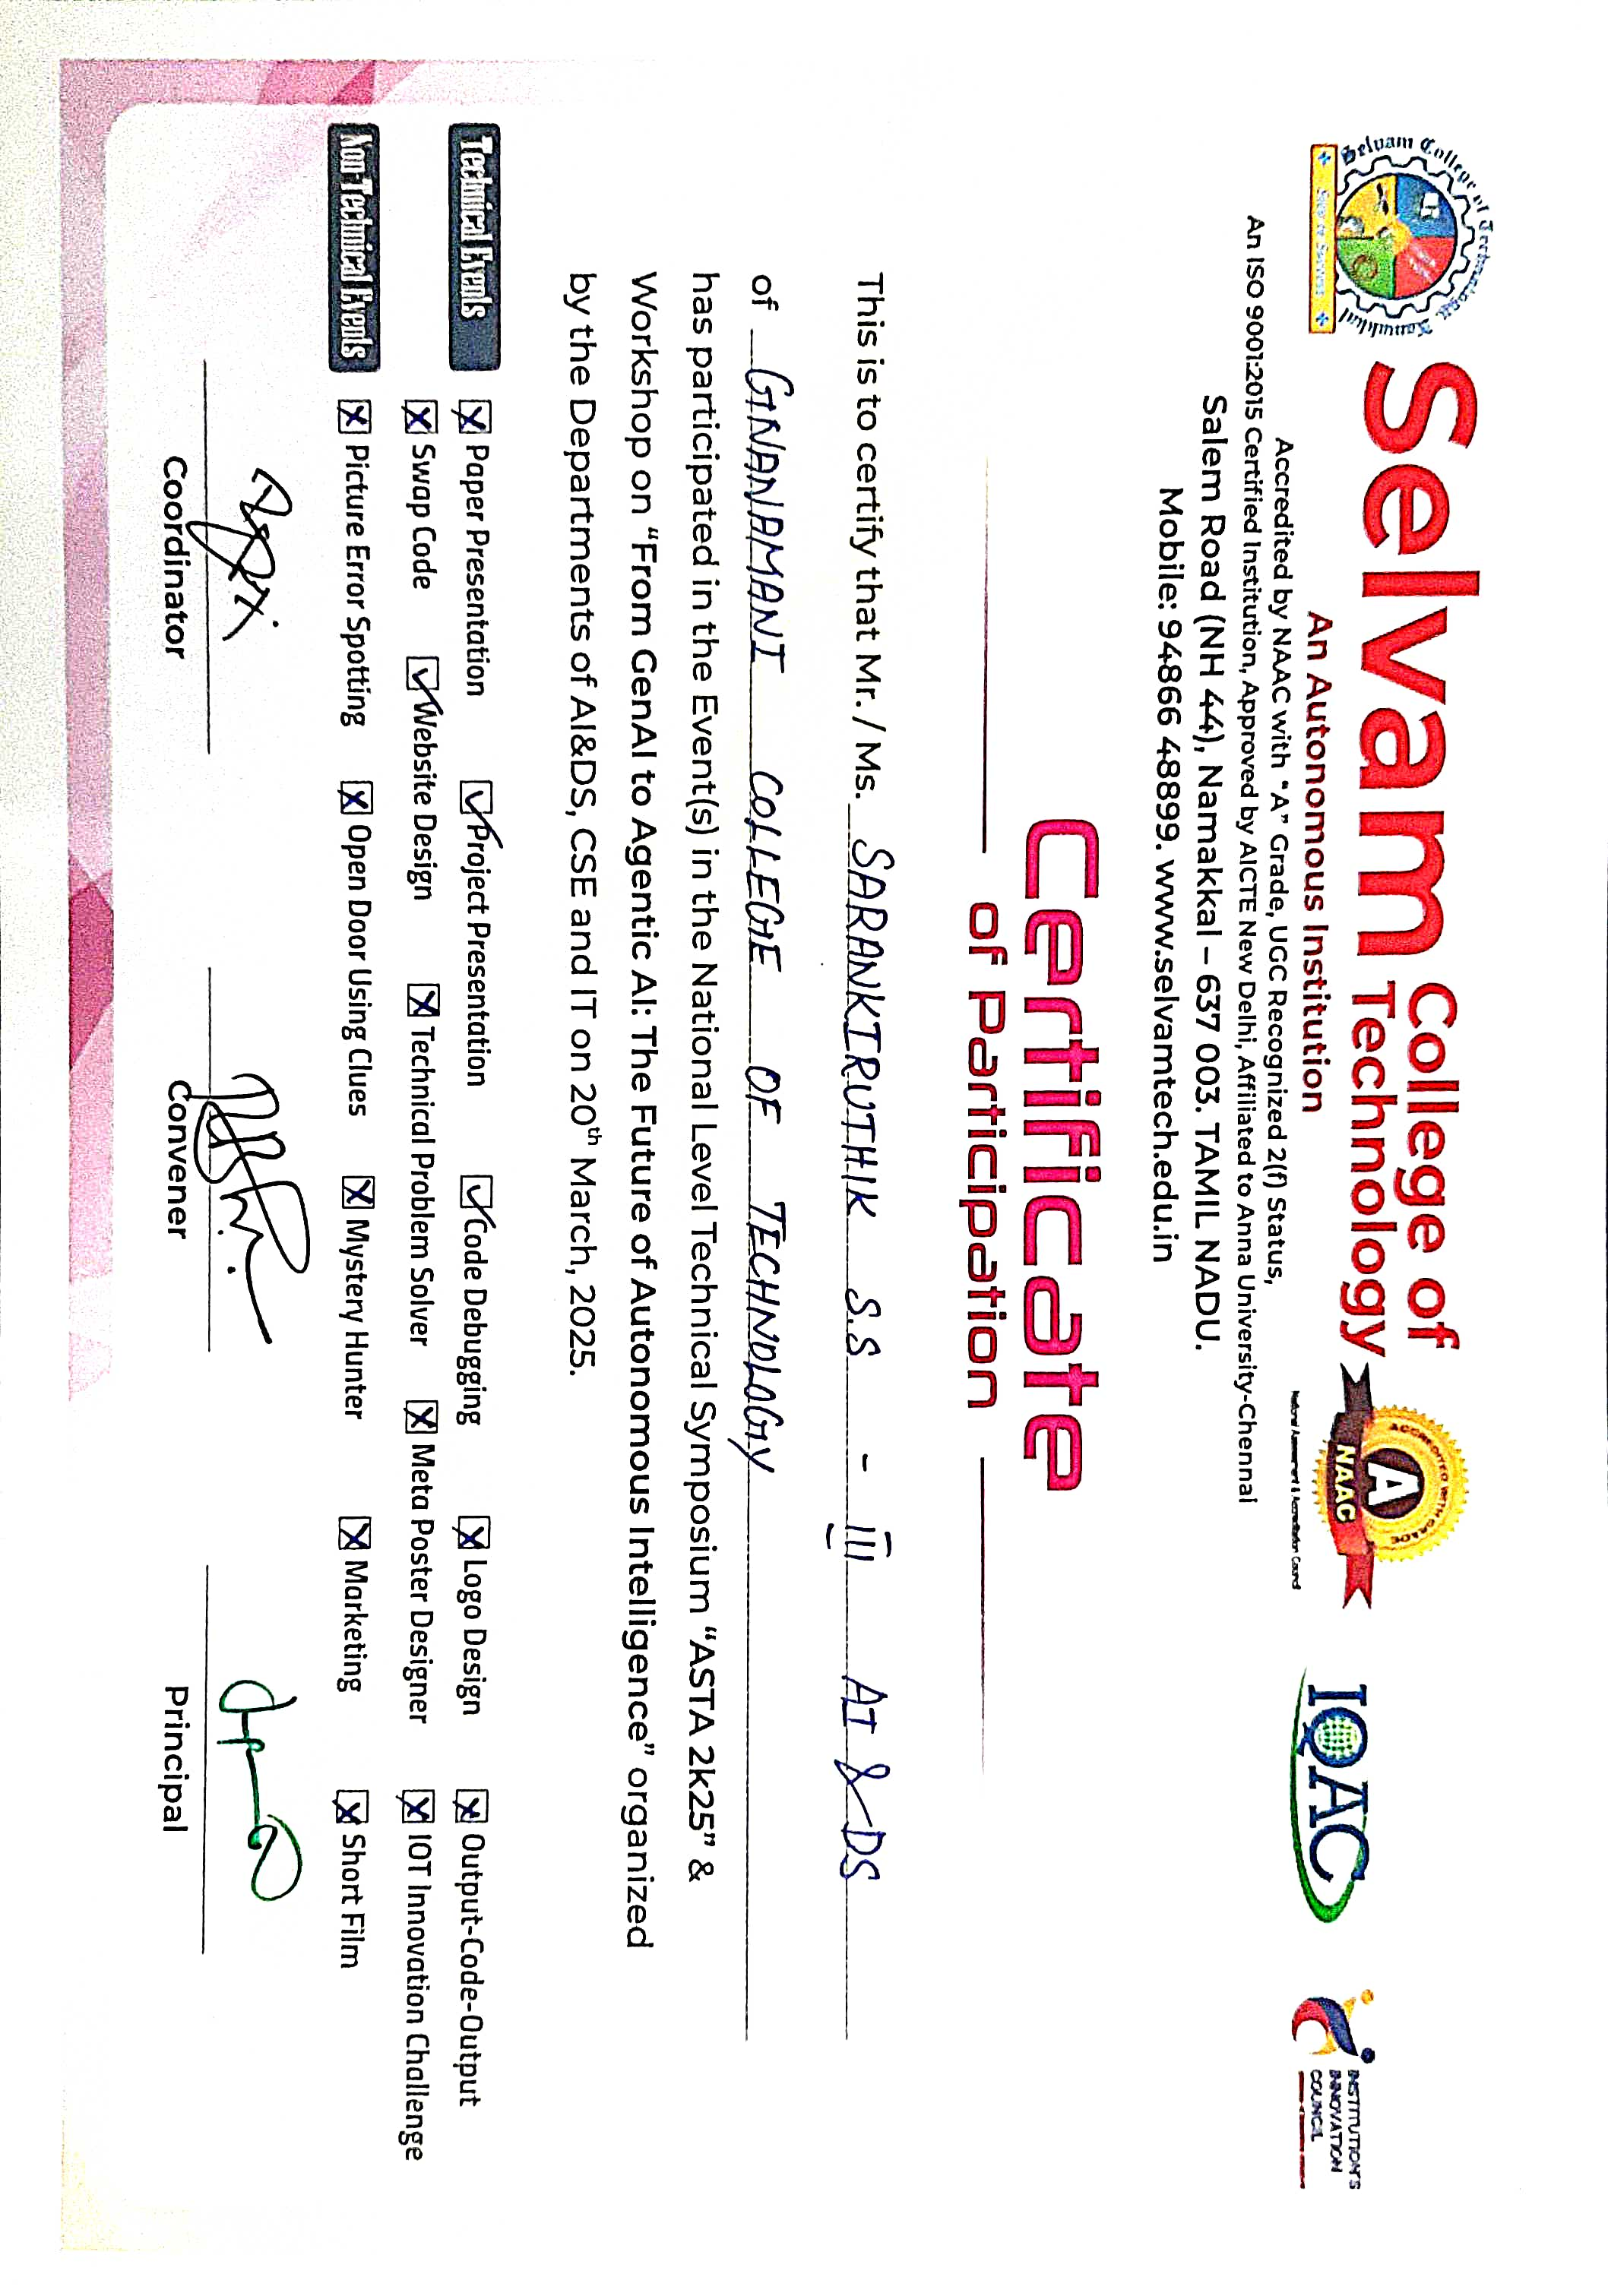 Selvam College of Technology, Namakkal
Selvam College of Technology
ACCREDITED WITH GRADE
A
NAAC
National Assessment & Accreditation Council
IQAC
INSTITUTION'S
INNOVATION
COUNCIL
An Autonomous Institution
Accredited by NAAC with "A" Grade, UGC Recognized 2(f) Status,
An ISO 9001:2015 Certified Institution, Approved by AICTE New Delhi, Affiliated to Anna University-Chennai
Salem Road (NH 44), Namakkal – 637 003. TAMIL NADU.
Mobile: 94866 48899. www.selvamtech.edu.in
Certificate
of Participation
This is to certify that Mr. / Ms. SARANKIRUTHIK S.S - III AI & DS
of GNANAMANI COLLEGE OF TECHNOLOGY
has participated in the Event(s) in the National Level Technical Symposium "ASTA 2k25" &
Workshop on "From GenAI to Agentic AI: The Future of Autonomous Intelligence" organized
by the Departments of AI&DS, CSE and IT on 20th March, 2025.
Technical Events ☒ Paper Presentation ☑ Project Presentation ☑ Code Debugging ☒ Logo Design ☒ Output-Code-Output
☒ Swap Code ☑ Website Design ☒ Technical Problem Solver ☒ Meta Poster Designer ☒ IOT Innovation Challenge
Non-Technical Events ☒ Picture Error Spotting ☒ Open Door Using Clues ☒ Mystery Hunter ☒ Marketing ☒ Short Film
Coordinator Convener Principal